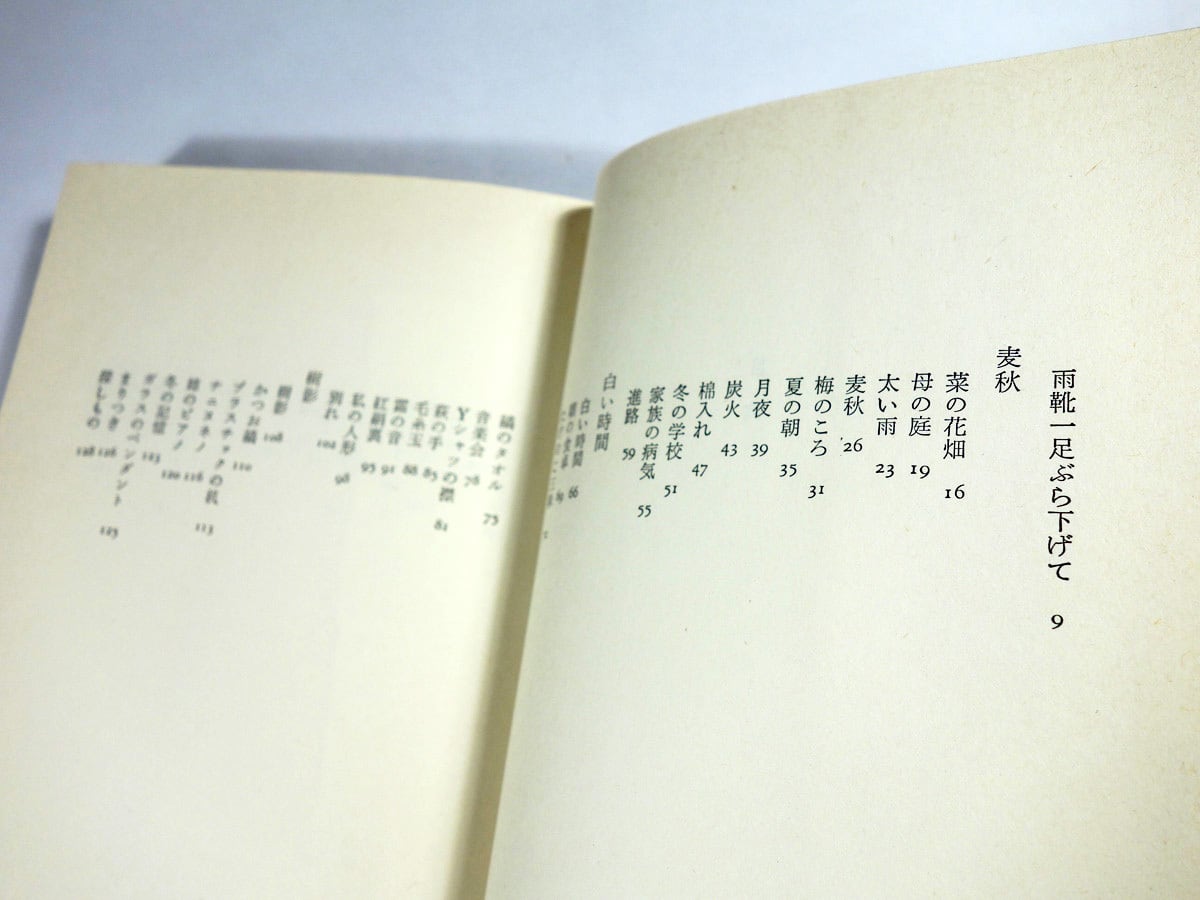 雨靴一足ぶら下げて 9
麦秋
菜の花畑 16
母の庭 19
太い雨 23
麦秋 26
梅のころ 31
夏の朝 35
月夜 39
炭火 43
棉入れ 47
冬の学校 51
家族の病気 55
進路 59
白い時間
白い時間 66
の食卓 69
のタオル 75
音楽会 78
Yシャツの襟 81
萩の手 85
毛糸玉 88
霜の音 91
紅絹裏 95
私の人形 98
別れ 104
樹影
樹影 108
かつお縞 110
プラスチックの机 113
ナニヌネノ 116
のピアノ 120
冬の記憶 123
ガラスのペンダント 125
まりつき 126
探しもの 128